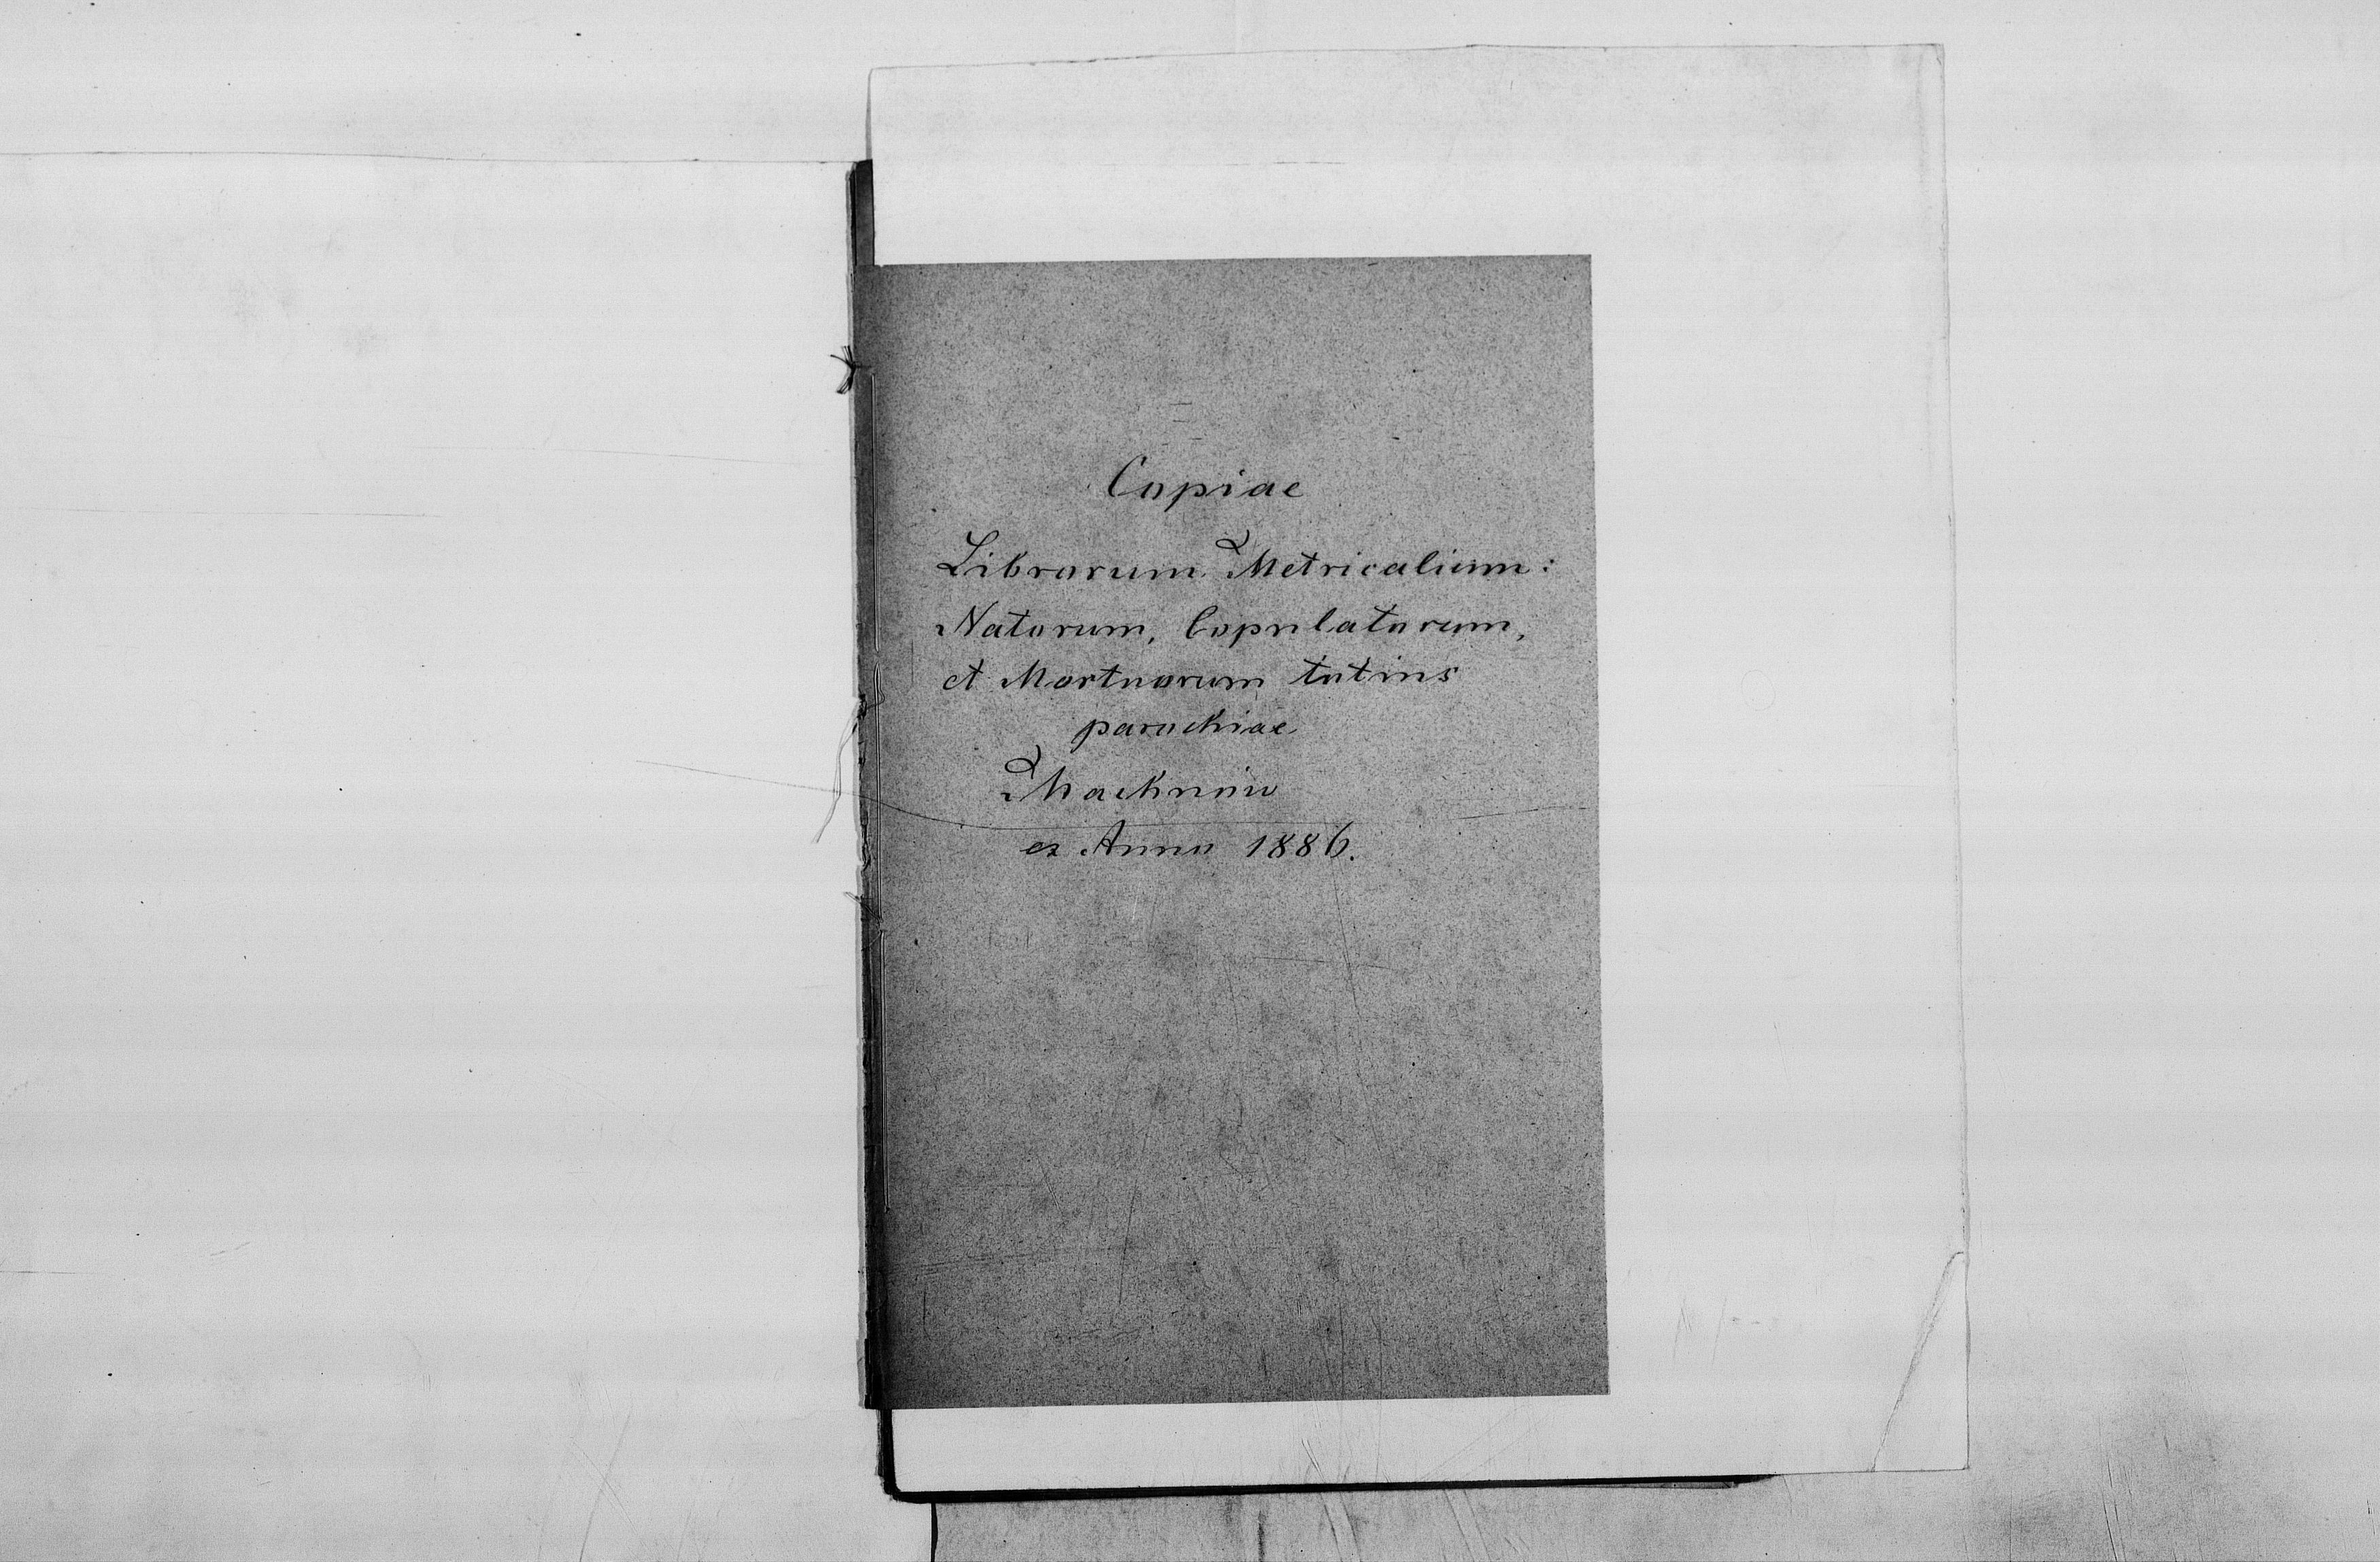 Copiae
Librorum Metricalium:
Natorum, Copulatorum,
et Mortuorum totius
parochiae
Machnów
ex Anno 1886.